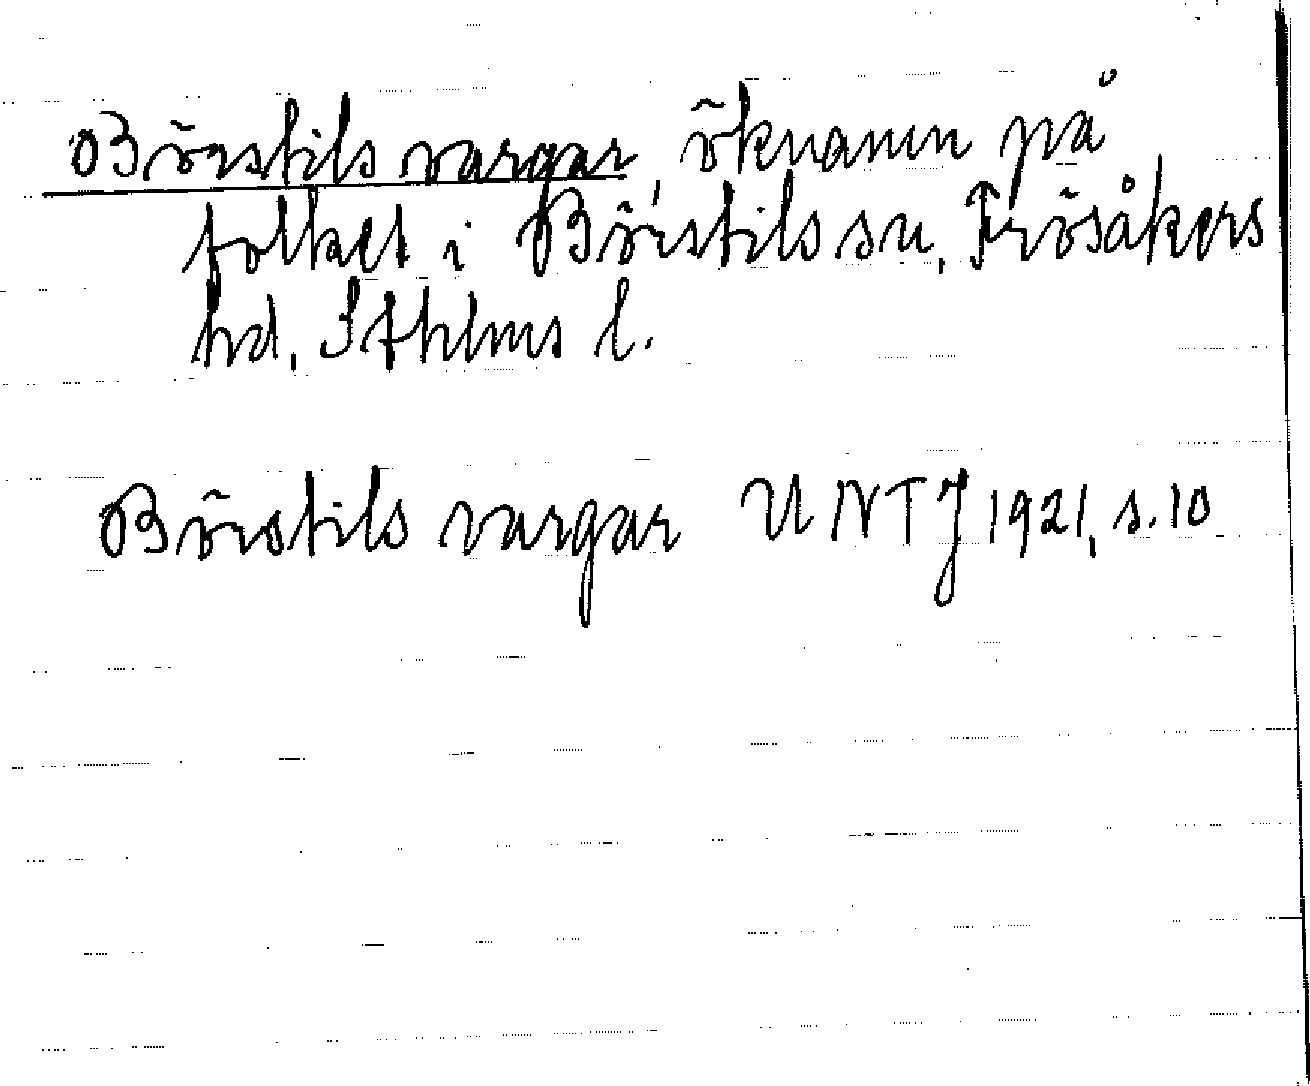 Börstils vargar, öknamn på
folket i Börstils sn, Frösåkers
hd, Sthlms l.
Börstils vargar UNTJ 1921, s. 10